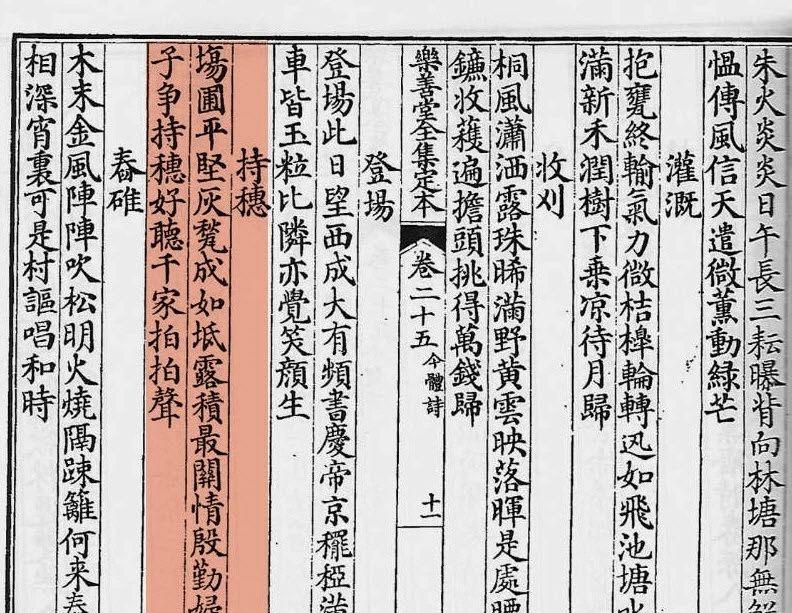 朱火炎炎日午長三耘曝背向林塘那無
慍傳風信天遣微薰動綠芒
灌溉
抱甕終輸氣力微桔槔輪轉迅如飛池塘水
滿新禾潤樹下乗凉待月歸
收刈
桐風瀟洒露珠晞滿野黄雲映落暉是處腰
鐮收穫遍擔頭挑得萬錢歸
樂善堂全集定本 卷二十五 今體詩 十一
登場
登場此日望西成大有頻書慶帝京䆉稏滿
車皆玉粒比隣亦覺笑顔生
持穗
塲圃平堅灰甃成如坻露積最關情殷勤婦
子争持穗好聽千家拍拍聲
舂碓
木末金風陣陣吹松明火燒隔疎籬何来舂
相深宵裏可是村謳唱和時